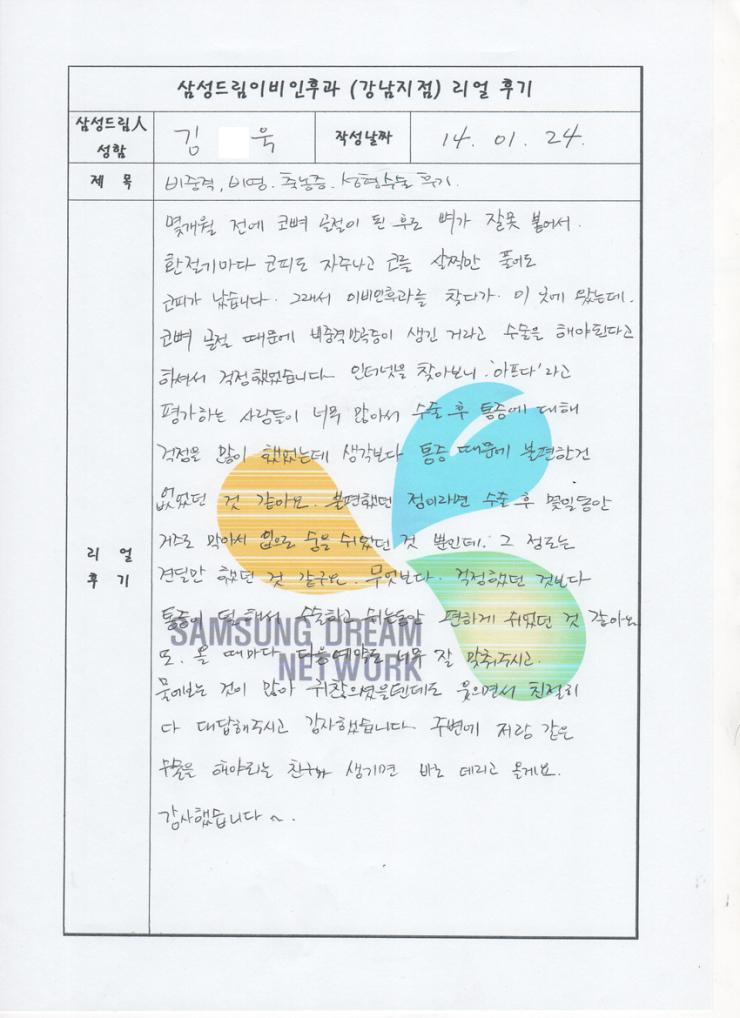 삼성드림이비인후과 (강남지점) 리얼 후기
삼성드림人 성함
김 욱
작성날짜
14. 01. 24.
제 목
비중격, 비염. 축농증. 성형수술 후기.
리 얼
후 기
몇개월 전에 코뼈 골절이 된 후로 뼈가 잘못 붙어서.
환절기마다 코피도 자주나고 코를 살짝만 풀어도
코피가 났습니다. 그래서 이비인후과를 찾다가 이 곳에 왔는데.
코뼈 골절 때문에 비중격만곡증이 생긴 거라고 수술을 해야된다고
하셔서 걱정했었습니다. 인터넷을 찾아보니 '아프다'라고
평가하는 사람들이 너무 많아서 수술 후 통증에 대해
걱정을 많이 했었는데 생각보다 통증 때문에 불편한건
없었던 것 같아요. 불편했던 점이라면 수술 후 몇일동안
거즈로 막아서 입으로 숨을 쉬었던 것 뿐인데. 그 정도는
견딜만 했던 것 같구요. 무엇보다. 걱정했던 것보다
통증이 덜해서 수술하고 쉬는동안 편하게 쉬었던 것 같아요
또. 올 때마다 다음예약도 너무 잘 맞춰주시고.
물어보는 것이 많아 귀찮으셨을텐데도 웃으면서 친절히
다 대답해주시고 감사했습니다. 주변에 저랑 같은
해야되는 생기면 바로 데리고 올게요.
감사했습니다 ~.
SAMSUNG DREAM
NETWORK